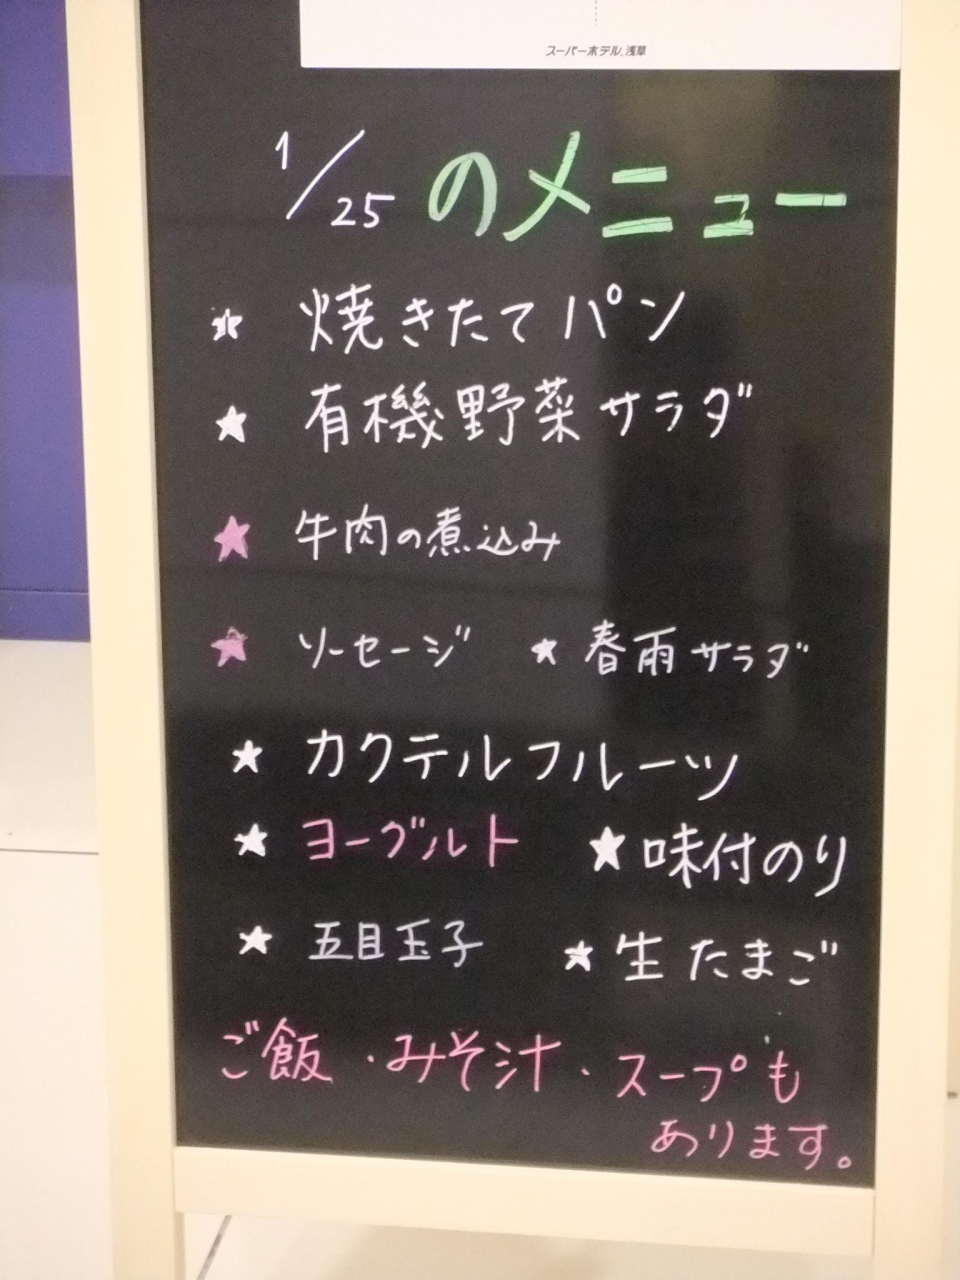 スーパーホテル浅草
1/25 のメニュー
★ 焼きたてパン
★ 有機野菜サラダ
★ 牛肉の煮込み
★ ソーセージ ★ 春雨サラダ
★ カクテルフルーツ
★ ヨーグルト ★ 味付のり
★ 五目玉子 ★ 生たまご
ご飯・みそ汁・スープも
あります。